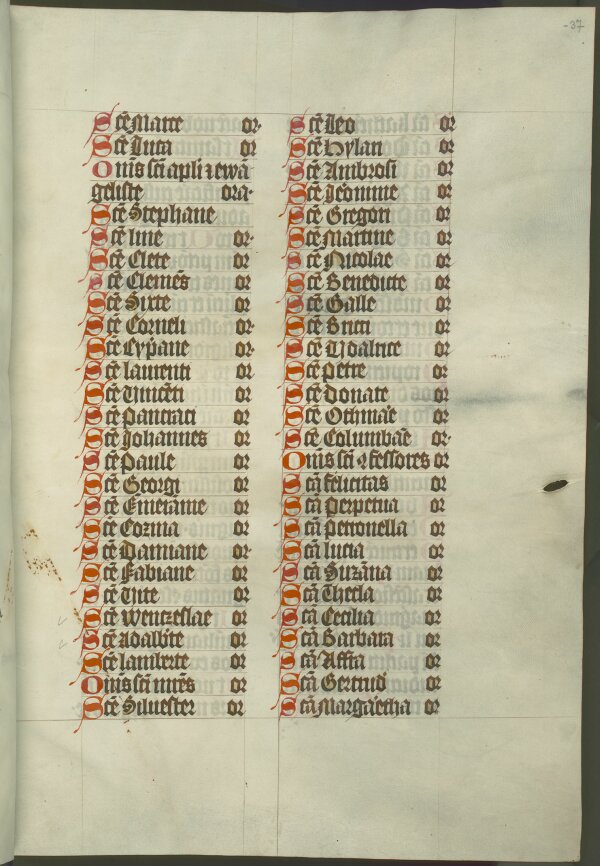 -37
Scē Marce or
Scē Luca or
Om̄s sc̄i apli ⁊ ewā
geliste ora
Scē Stephane
Scē line or
Scē Clete or
Scē Clemēs or
Scē Sixte or
Scē Corneli or
Scē Cypāne or
Scē laurenti or
Scē Vincēti or
Scē Pancraci or
Scē Johannes or
Scē Paule or
Scē Georgi or
Scē Emeranne or
Scē Cozma or
Scē Damiane or
Scē Fabiane or
Scē Vite or
Scē Wentzeslae or
Scē Adalbte or
Scē lamberte or
Om̄s sc̄i mr̄es or
Scē Siluester or
Scē Leo or
Scē Hylari or
Scē Ambrosi or
Scē Jeōnime or
Scē Gregori or
Scē Martine or
Scē Nicolae or
Scē Benedicte or
Scē Galle or
Scē Bricti or
Scē Vdalrice or
Scē Petre or
Scē Donate or
Scē Othmāe or
Scē Columbāe or
Om̄s sc̄i ꝯfessores or
Scā felicitas or
Scā Perpetua or
Scā Petronella or
Scā lucia or
Scā Suzāna or
Scā Thecla or
Scā Cecilia or
Scā Barbara or
Scā Affra or
Scā Gertrud or
Scā Margāetha or